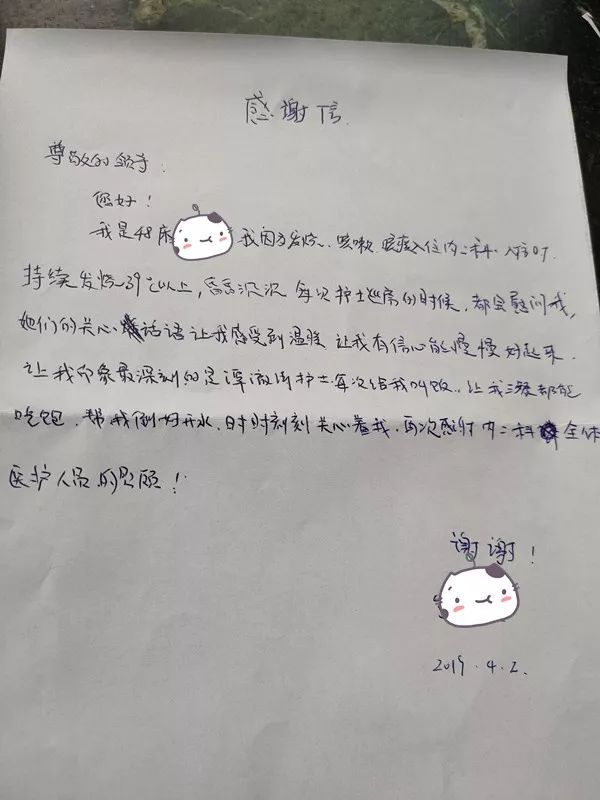 感谢信
尊敬的领导:
您好!
我是48床 我因为发烧、咳嗽、痰多入住内二科.入院时
持续发烧39℃以上,昏昏沉沉 每次护士巡房的时候,都会慰问我,
她们的关心话语让我感受到温暖 让我有信心能慢慢好起来.
让我印象最深刻的是谭激街护士每次给我叫饭、让我三餐都能
吃饱,帮我倒好开水,时时刻刻关心着我.再次感谢内二科全体
医护人员的照顾!
谢谢!
2019.4.2.